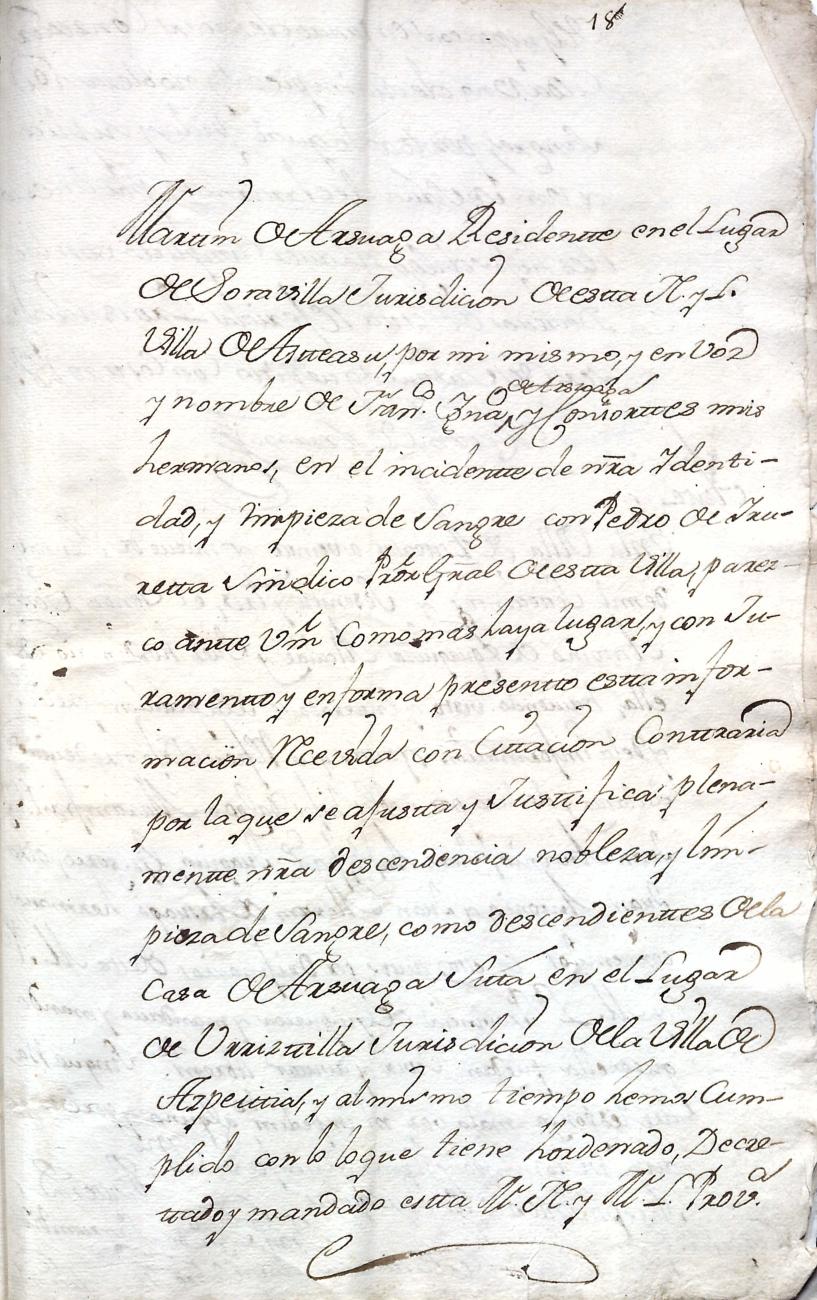 18
Martin de Arsuaga Residentte en el Lugar
de Soravilla Jurisdicion de estta N. y L.
Villa de Astteasu, por mi mismo, y en voz
de Arsuaga
y nombre de Fran.co Ygna.o y Consorttes mis
hermanos, en el incidentte de nr̃a Ydenti-
dad, y limpieza de Sangre con Pedro de Yru-
retta Sindico Pror Gñral de estta Villa, parez-
co antte Vm Como mas haya lugar, y con Ju-
ramentto y en forma presentto estta infor-
macion Rcevida con Cittacion Conttraria
por la que se ajustta y Justtifica plena-
mentte nr̃a descendencia nobleza, y lim-
pieza de Sangre, como descendienttes de la
Casa de Arsuaga Sitta en el Lugar
de Urristtilla Jurisdicion de la Villa de
Azpeittia, y al mismo tiempo hemos Cum-
plido con lo loque tiene hordenado, Decre-
ttado y mandado estta M. N. y M. L. Prov.a